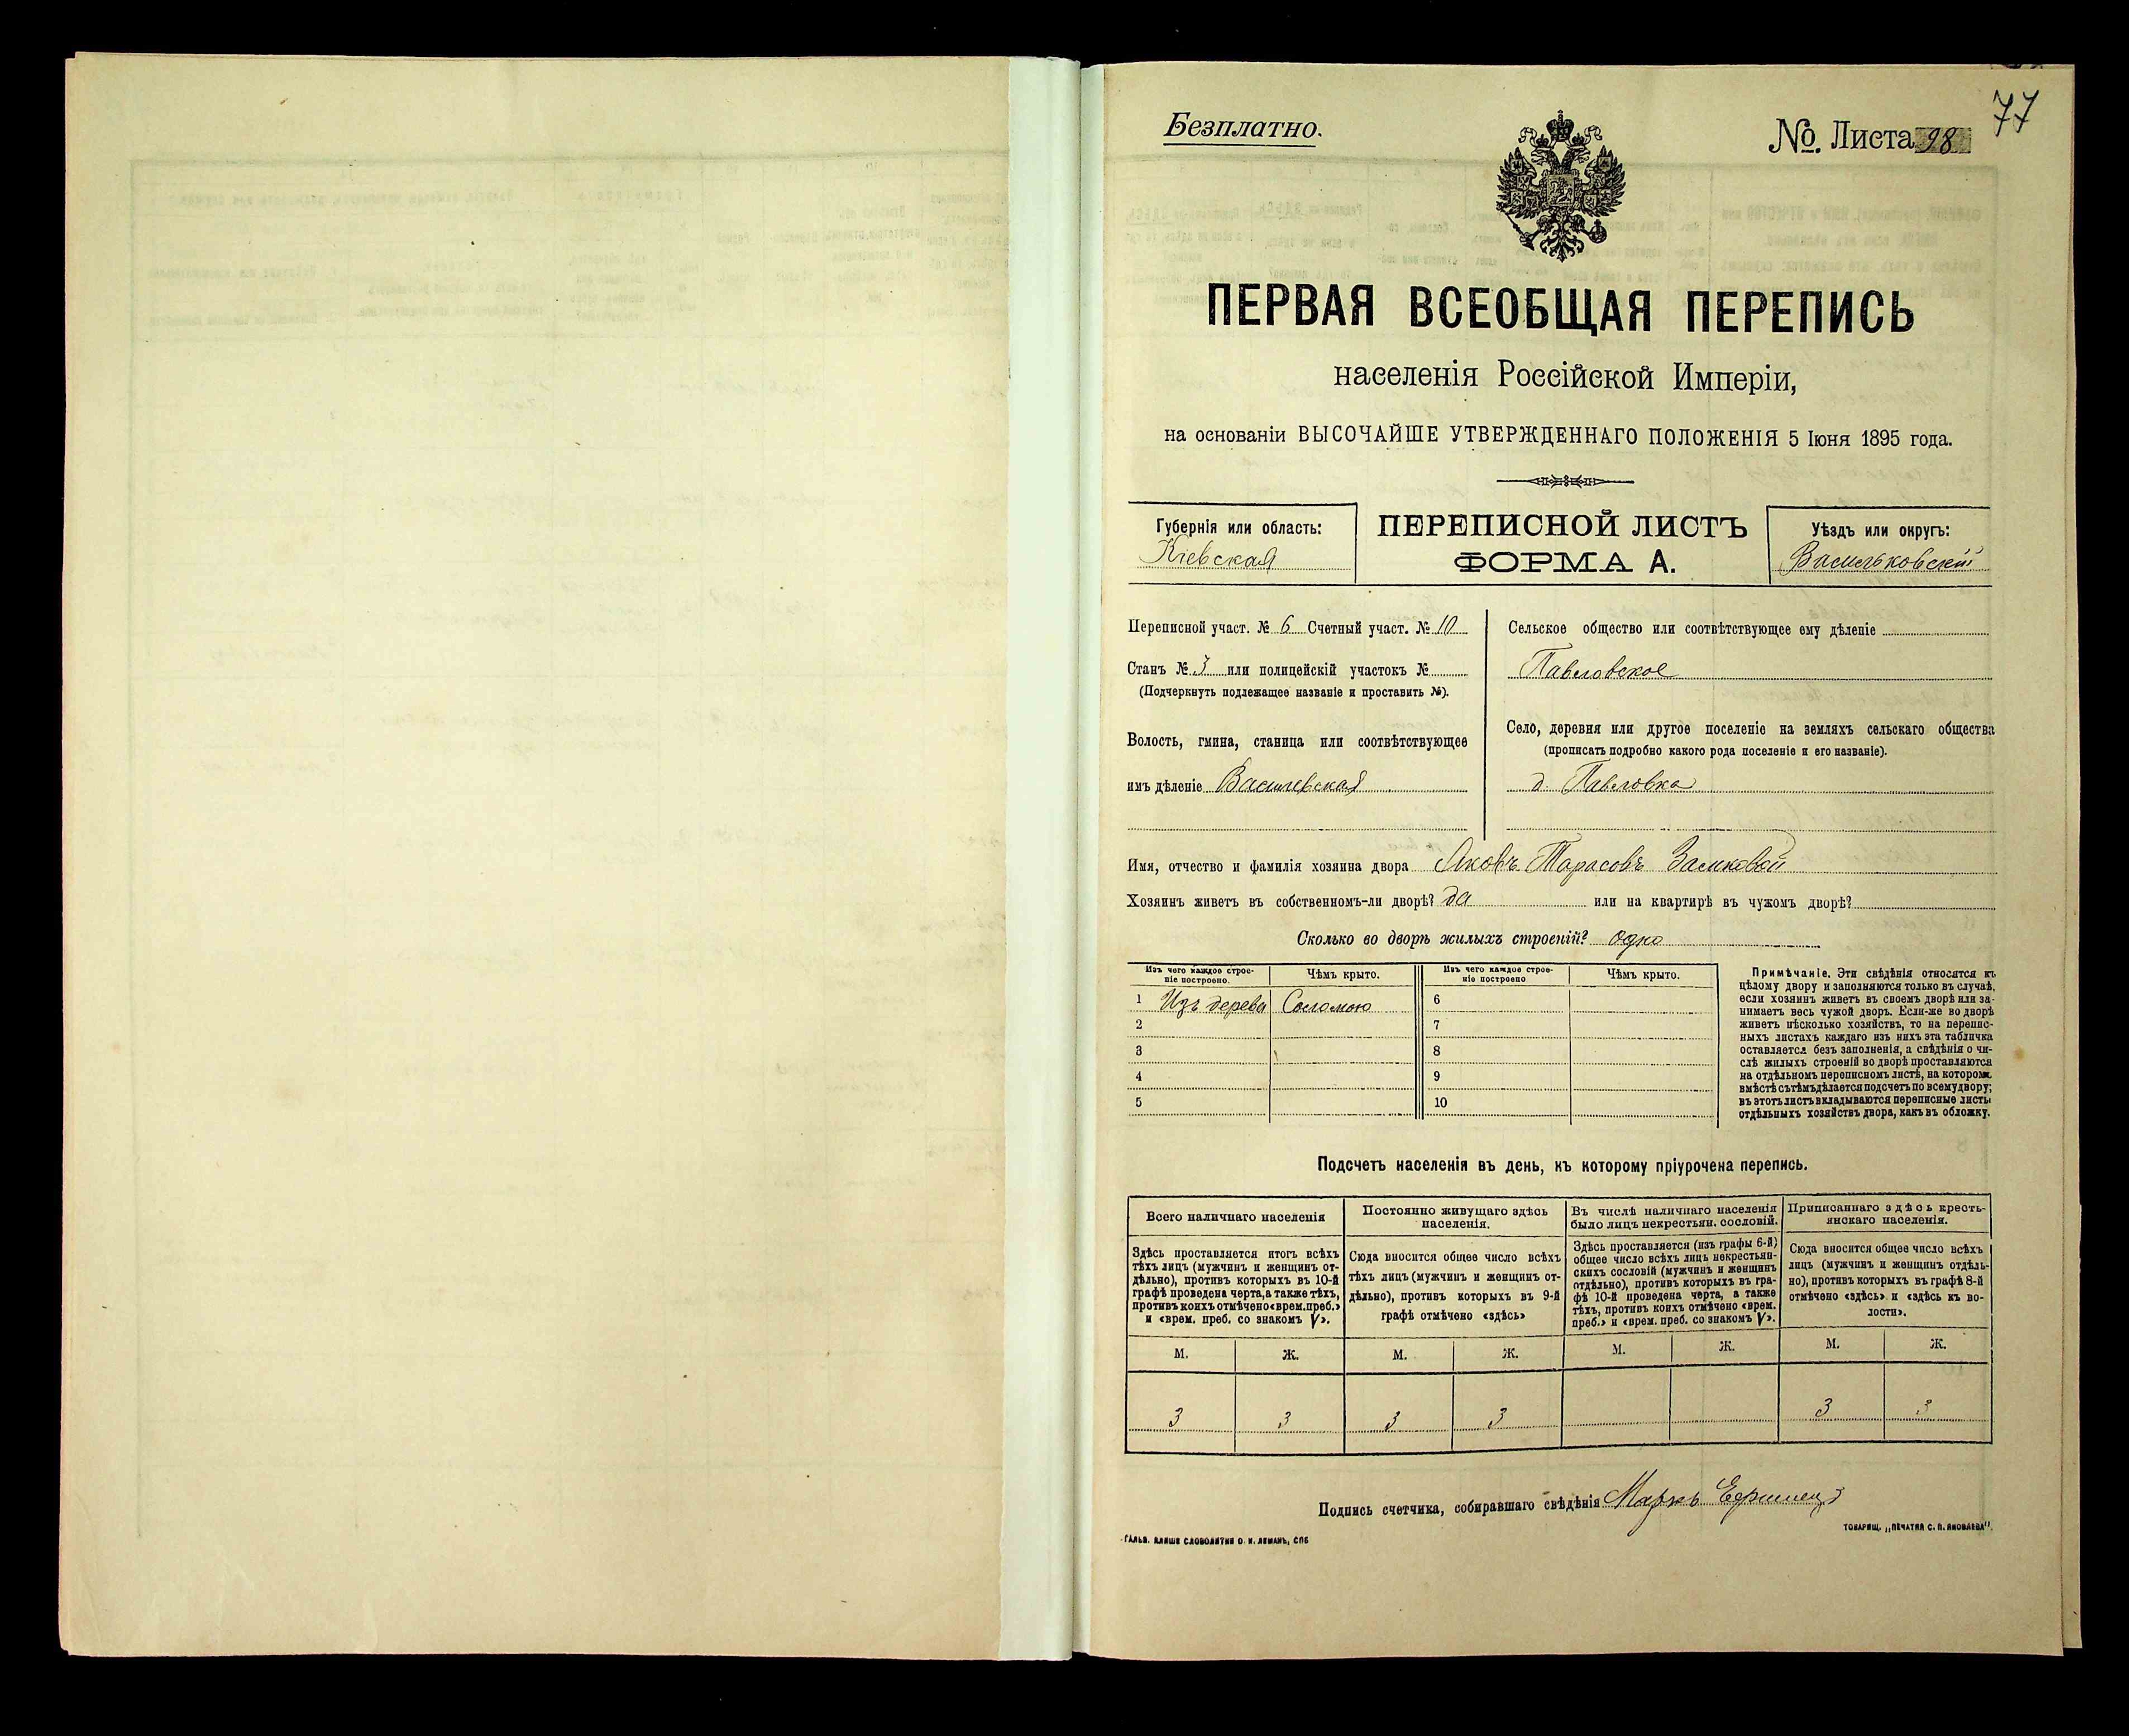 77
Безплатно.
№. Листа 98
ПЕРВАЯ ВСЕОБЩАЯ ПЕРЕПИСЬ
населенія Россійской Имперіи,
на основаніи ВЫСОЧАЙШЕ УТВЕРЖДЕННАГО ПОЛОЖЕНІЯ 5 Іюня 1895 года.
Губернія или область:
Кіевская
ПЕРЕПИСНОЙ ЛИСТЪ
ФОРМА А.
Уѣздъ или округъ:
Васильковскій
Переписной участ. № 6 Счетный участ. № 10
Станъ № 3 или полицейскій участокъ №
(Подчеркнуть подлежащее названіе и проставить №).
Волость, гмина, станица или соотвѣтствующее
имъ дѣленіе Василевская
Сельское общество или соотвѣтствующее ему дѣленіе
Павловское
Село, деревня или другое поселеніе на земляхъ сельскаго общества
(прописать подробно какого рода поселеніе и его названіе).
д. Павловка
Имя, отчество и фамилія хозяина двора Яковъ Тарасовъ Замковой
Хозяинъ живетъ въ собственномъ-ли дворѣ? да или на квартирѣ въ чужомъ дворѣ?
Сколько во дворѣ жилыхъ строеній? одно
Изъ чего каждое строе-
ніе построено.
Чѣмъ крыто.
Изъ чего каждое строе-
ніе построено
Чѣмъ крыто.
1 Изъ дерева Соломою 6
2 7
3 8
4 9
5 10
Примѣчаніе. Эти свѣдѣнія относятся къ
цѣлому двору и заполняются только въ случаѣ,
если хозяинъ живетъ въ своемъ дворѣ или за-
нимаетъ весь чужой дворъ. Если-же во дворѣ
живетъ нѣсколько хозяйствъ, то на перепис-
ныхъ листахъ каждаго изъ нихъ эта табличка
оставляется безъ заполненія, а свѣдѣнія о чи-
слѣ жилыхъ строеній во дворѣ проставляются
на отдѣльномъ переписномъ листѣ, на которомъ
вмѣстѣ съ тѣмъ дѣлается подсчетъ по всему двору;
въ этотъ листъ вкладываются переписные листы
отдѣльныхъ хозяйствъ двора, какъ въ обложку.
Подсчетъ населенія въ день, къ которому пріурочена перепись.
Всего наличнаго населенія
Постоянно живущаго здѣсь
населенія.
Въ числѣ наличнаго населенія
было лицъ некрестьян. сословій.
Приписаннаго здѣсь кресть-
янскаго населенія.
Здѣсь проставляется итогъ всѣхъ
тѣхъ лицъ (мужчинъ и женщинъ от-
дѣльно), противъ которыхъ въ 10-й
графѣ проведена черта, а также тѣхъ,
противъ коихъ отмѣчено «врем. преб.»
и «врем. преб. со знакомъ V».
Сюда вносится общее число всѣхъ
тѣхъ лицъ (мужчинъ и женщинъ от-
дѣльно), противъ которыхъ въ 9-й
графѣ отмѣчено «здѣсь»
Здѣсь проставляется (изъ графы 6-й)
общее число всѣхъ лицъ некрестьян-
скихъ сословій (мужчинъ и женщинъ
отдѣльно), противъ которыхъ въ гра-
фѣ 10-й проведена черта, а также
тѣхъ, противъ коихъ отмѣчено «врем.
преб.» и «врем. преб. со знакомъ V».
Сюда вносится общее число всѣхъ
лицъ (мужчинъ и женщинъ отдѣль-
но), противъ которыхъ въ графѣ 8-й
отмѣчено «здѣсь» и «здѣсь къ во-
лости».
М. Ж. М. Ж. М. Ж. М. Ж.
3 3 3 3 3 3
Подпись счетчика, собиравшаго свѣдѣнія Маркъ
ГАЛЬВ. КЛИШЕ СЛОВОЛИТНИ О. И. ЛЕМАНЪ, СПБ
ТОВАРИЩ. „ПЕЧАТНЯ С. П. ЯКОВЛЕВА".